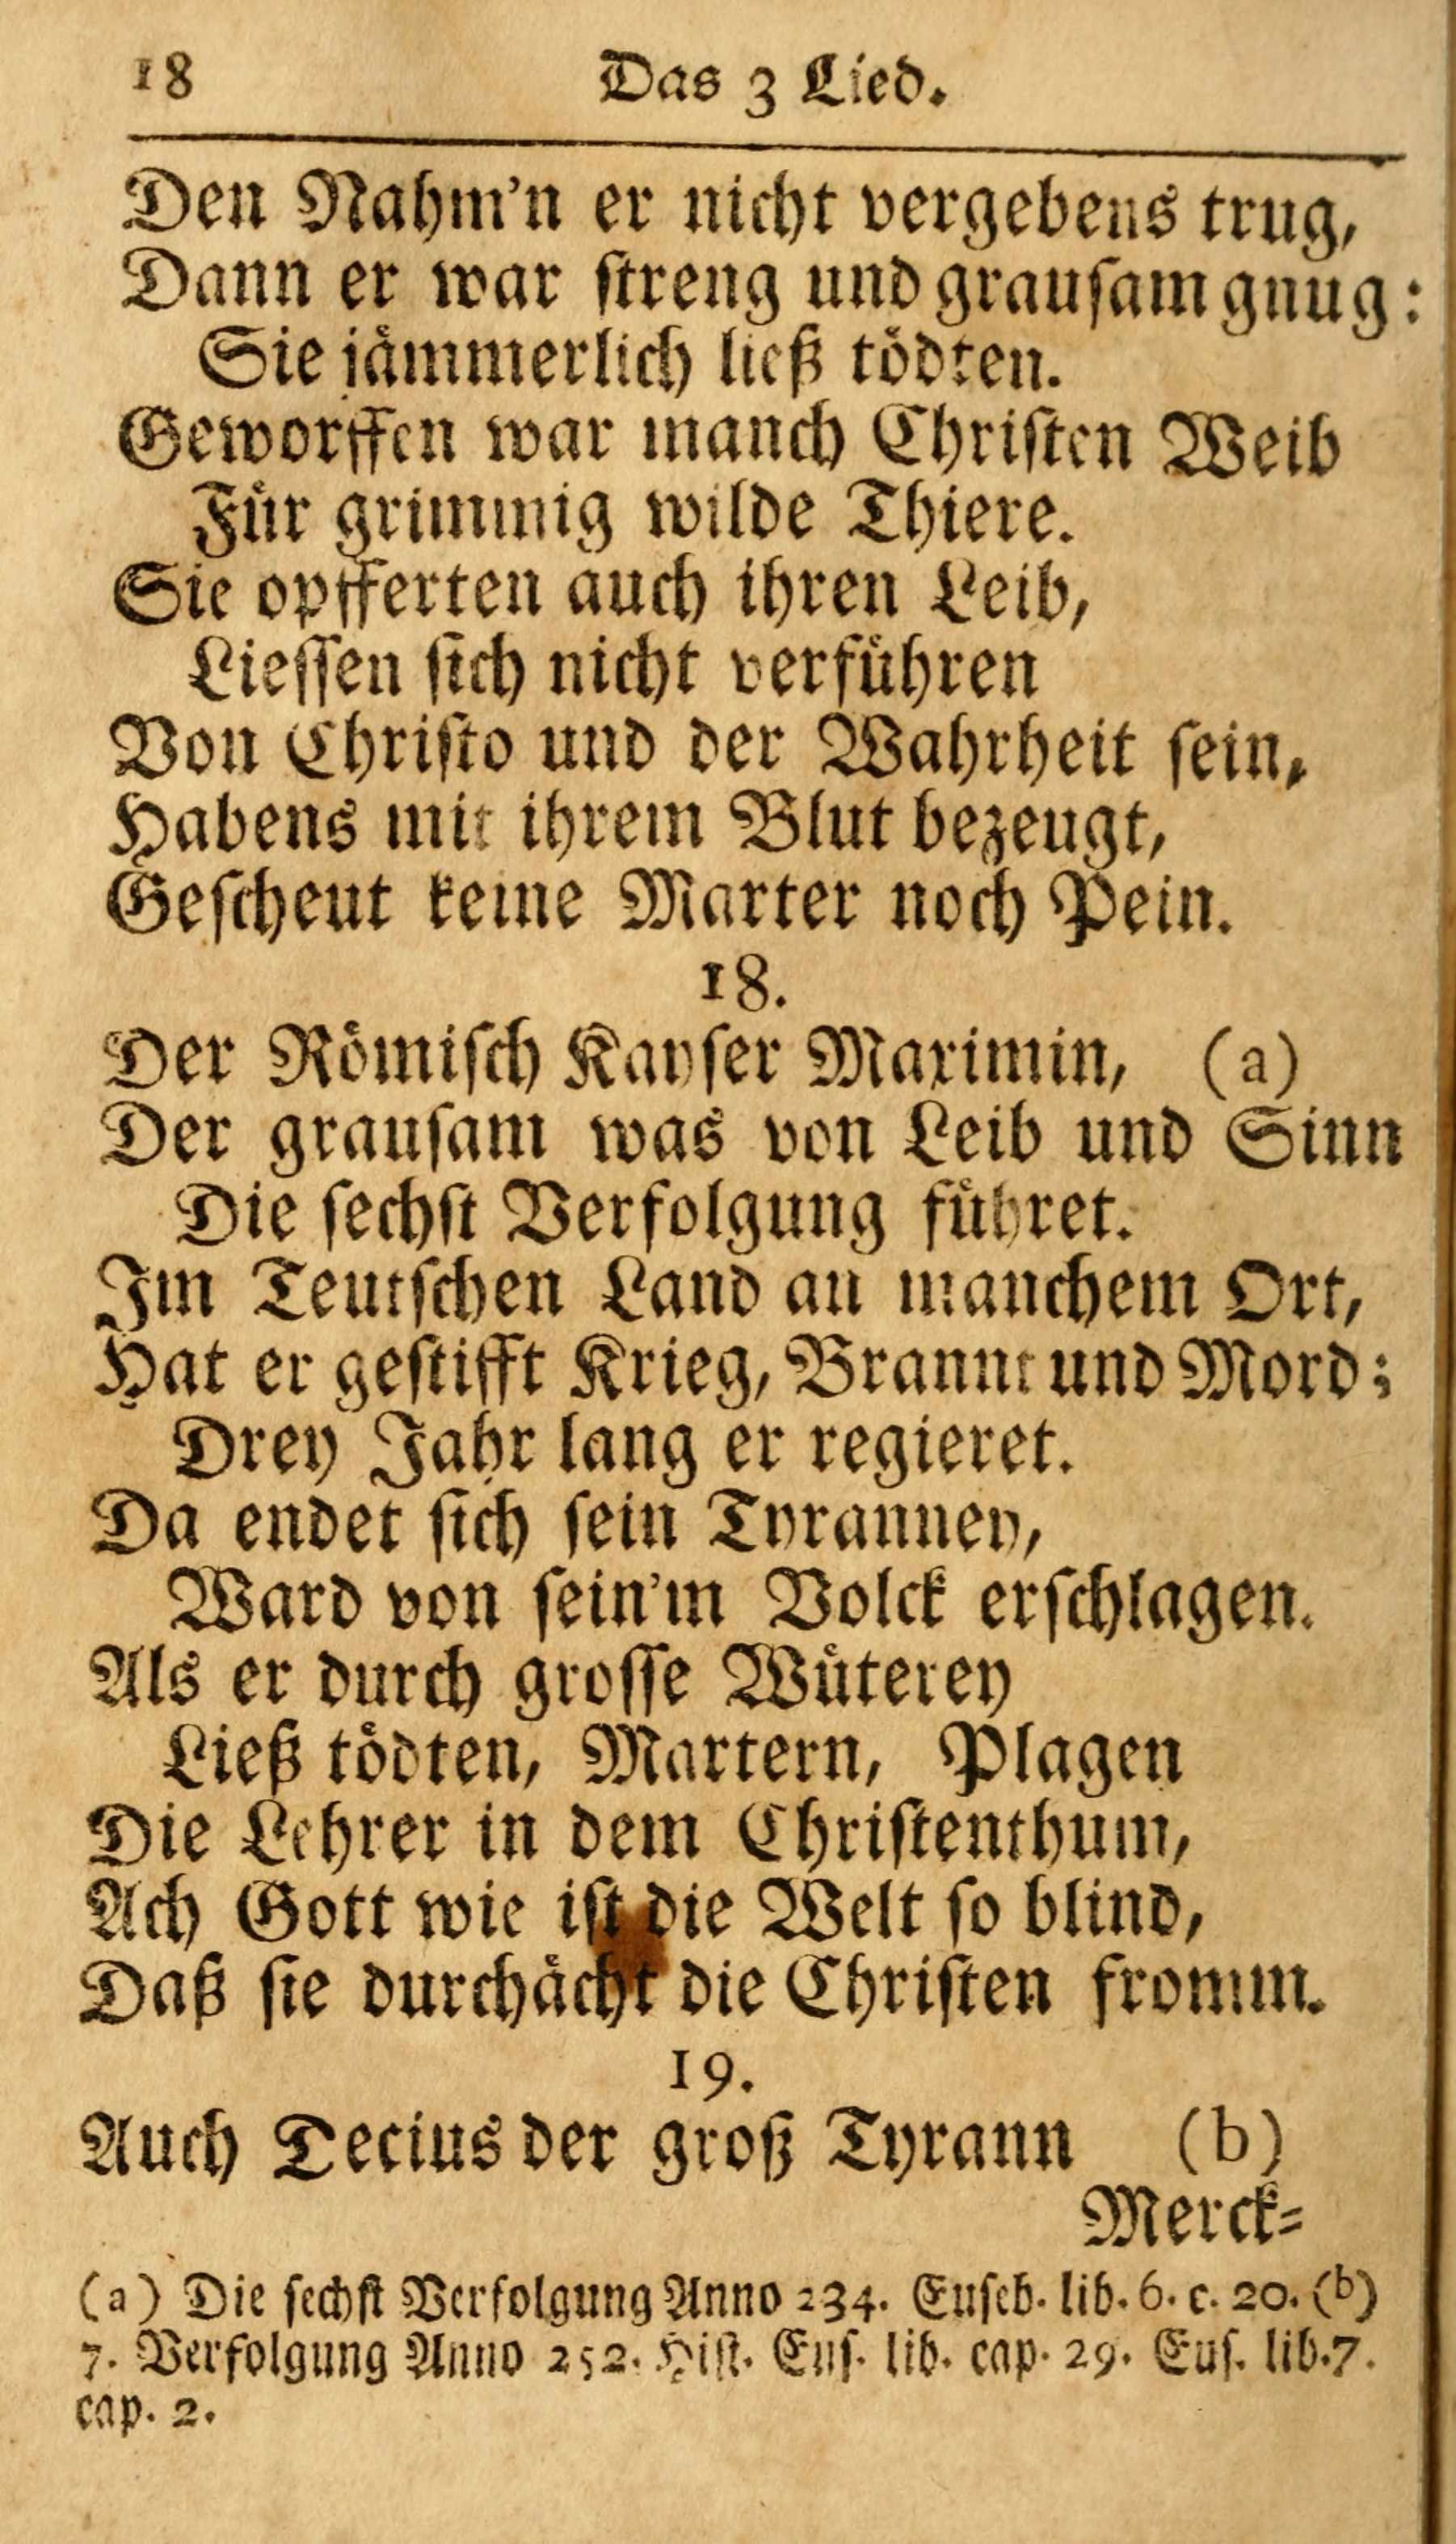 18 Das 3 Lied.
Den Nahm'n er nicht vergebens trug,
Dann er war streng und grausam gnug:
Sie jämmerlich ließ tödten.
Geworffen war manch Christen Weib
Für grimmig wilde Thiere.
Sie opfferten auch ihren Leib,
Liessen sich nicht verführen
Von Christo und der Wahrheit sein,
Habens mit ihrem Blut bezeugt,
Gescheut keine Marter noch Pein.
18.
Der Römisch Kayser Maximin, (a)
Der grausam was von Leib und Sinn
Die sechst Verfolgung führet.
Im Teutschen Land an manchem Ort,
Hat er gestifft Krieg, Brannt und Mord;
Drey Jahr lang er regieret.
Da endet sich sein Tyranney,
Ward von sein'm Volck erschlagen.
Als er durch grosse Wüterey
Ließ tödten, Martern, Plagen
Die Lehrer in dem Christenthum,
Ach Gott wie ist die Welt so blind,
Daß sie durchächt die Christen fromm.
19.
Auch Decius der groß Tyrann (b)
Merck-
(a) Die sechst Verfolgung Anno 234. Euseb. lib. 6. c. 20. (b)
7. Verfolgung Anno 252. Hist. Eus. lib. cap. 29. Eus. lib. 7.
cap. 2.